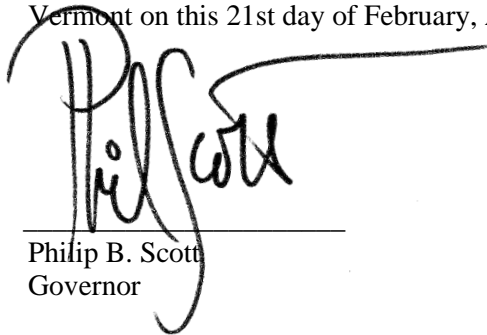 Vermont on this 21st day of February,
Phil Scott
Philip B. Scott
Governor